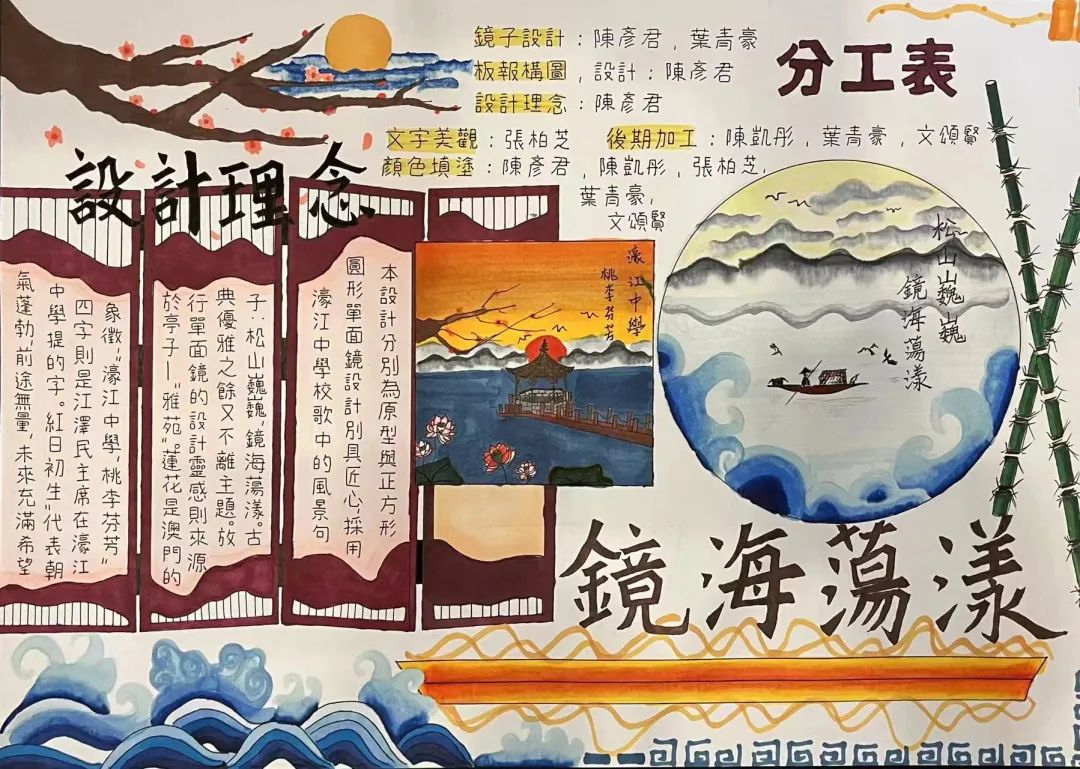 分工表
鏡子設計：陳彥君，葉青豪
板報構圖，設計：陳彥君
設計理念：陳彥君
文字美觀：張柏芝
後期加工：陳凱彤，葉青豪，文頌賢
顏色填塗：陳彥君，陳凱彤，張柏芝，
葉青豪，
文頌賢
設計理念
本設計分別為原型與正方形
圓形單面鏡設計別具匠心，採用
濠江中學校歌中的風景句
子：松山巍巍，鏡海蕩漾。古
典優雅之餘又不離主題。放
行單面鏡的設計靈感則來源
於亭子—"雅苑"。蓮花是澳門的
象徵，"濠江中學，桃李芬芳"
四字則是江澤民主席在濠江
中學提的字。"紅日初生"代表朝
氣蓬勃，前途無量，未來充滿希望
濠江中學
桃李芬芳
松山巍巍
鏡海蕩漾
鏡海蕩漾